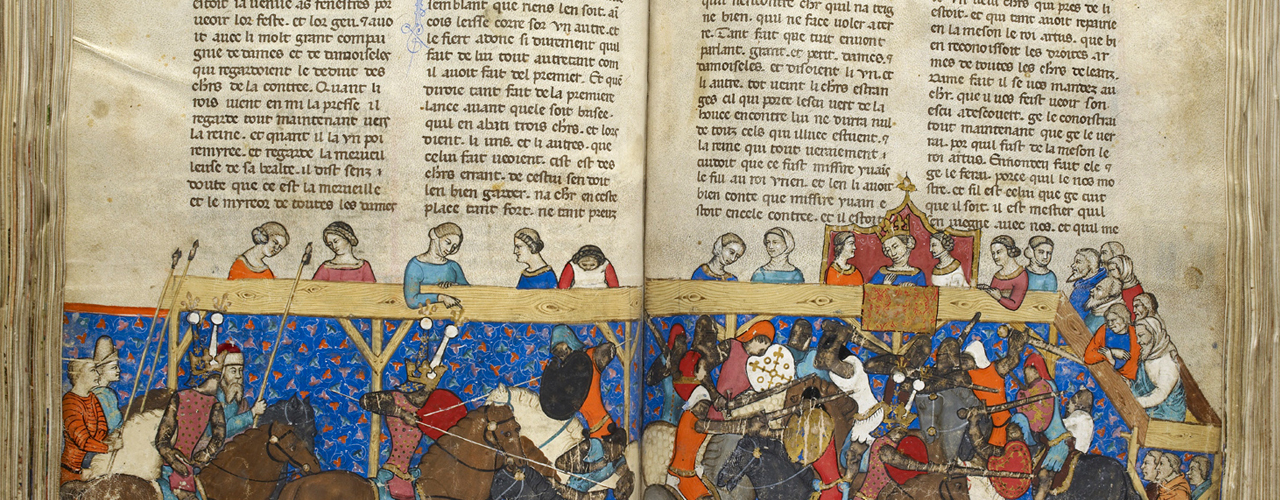 estoit ia venue as fenestres por
veoir lor feste. et lor geu. et auo
it auec li molt grant compai
gnie de dames et de damoiseles
qui regardoient le deduit des
chrs de la contree. Quant li
rois vient en mi la presse il
regarde tout maintenant vers
la reine. et quant il la vn poi
remyree. et regarde la merueil
leuse de sa bealte. il dist senz
doute que ce est la merueille
et le myreor de toutes les dames
semblant que riens len soit. ai
cois leisse corre sor vn autre. et
le fiert adonc si durement quil
fait de lui tout autretant com
il auoit fait del premier. Et que
diroie tant fait de la premiere
lance auant quele soit brisee.
quil en abati trois chrs. et lors
dient. li uns. et li autres. que
celui fait veoient. cist est des
chrs errant. de cestui sen doit
len bien garder. na chr en ceste
place tant fort. ne tant preuz
ne bien. quil ne face voler a ter
re. Tant fait que tuit en vont
parlant. grant. et petit. dames.
damoiseles. et disoient li vn. et
li autre. tot veint li chrs estran
ges cil qui porte lescu vert de la
houce encontre lui ne durra nul
de touz cels qui illuec estuent.
la reine qui tout veraiement
cuidoit que ce fust missire yuain
le fill au roi vrien. et len li auoit
bien conte que missire yuain e
stoit en cele contree. et il estoit
estoit. et qui tant auoit repairie
en la meson le roi artus. que bi
en reconoissoit les droites ar
mes de toutes les chrs de leanz.
Dame fait il se vos mandez au
chr. que il vos feist veoir son
escu a descouert. ge le conoistrai
tout maintenant que ge le ver
rai. por quil fust de la meson le
roi artus. Einondeu fait ele
ge le ferai. porce quil le nos mo
stre. et sil est celui que ge cuit
que il soit. il est mestier quil
en viegne auec nos. et quil me